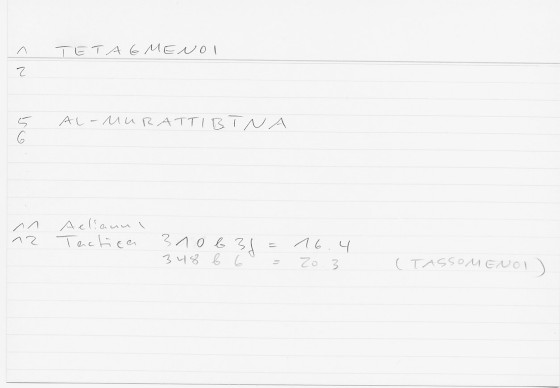 1 TETAGMENOI
2
5 AL-MURATTIBĪNA
6
11 Aelianus
12 Tactica 310 b 3f = 16.4
348 b 6 = 20 3 (TASSOMENOI)